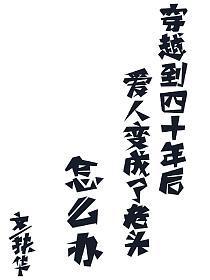 穿越到四十年后
爱人变成了老头
怎么办
文/扶华